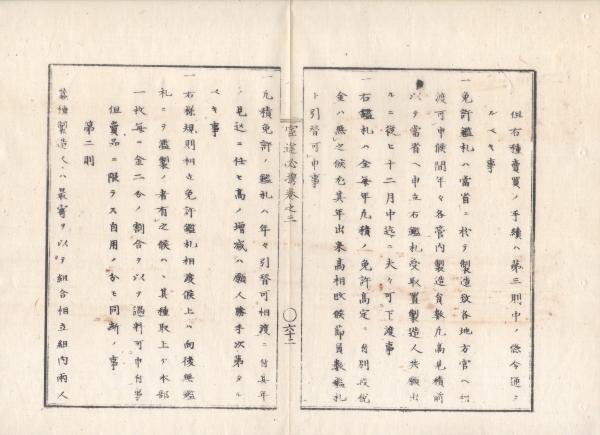 但右種賣買ノ手續ハ第三則中ノ條令通タ
ルヘキ事
一免許鑑札ハ當省ニ於テ製造致各地方官ヘ相
渡可申候間年々各管内製造員數凡高見積前
以テ當省ヘ申立右鑑札受取置製造人共願出
ルニ從ヒ十二月中迄ニ夫々可下渡事
一右鑑札ハ全每年凡積ノ免許高定ニ付別段税
金ハ無之候尤其年出来高相改候節員數鑑札
ト引替可申事
一凡積免許ノ鑑札ハ年々引替可相渡ニ付其年
ノ見込ニ任セ高ノ増減ハ願人勝手次第タル
ヘキ事
一右様規則相立免許鑑札相渡候上ハ向後無鑑
札ニテ濫製ノ者有之候ハヽ其種取上ケ本部
一枚每ニ金二分ノ割合ヲ以テ過料可申付事
但賣品ニ限ラス自用ノ分モ同断ノ事
第二則
蚕種製造人ハ最寄ヲ以テ組合相立組内兩人
卷之二
〇六十二